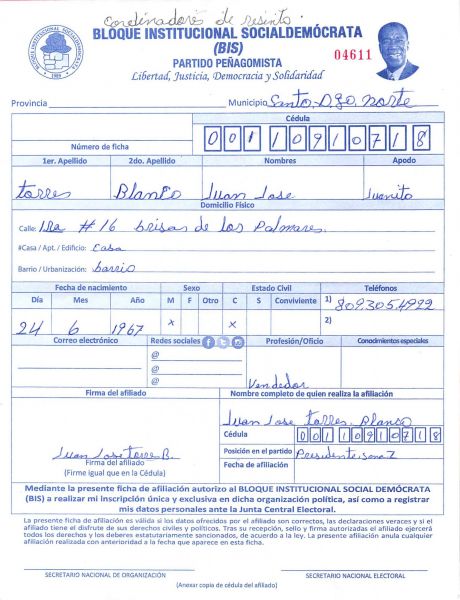 Cordinadores de resinto
BLOQUE INSTITUCIONAL SOCIALDEMÓCRATA
(BIS)
04611
PARTIDO PEÑAGOMISTA
Libertad, Justicia, Democracia y Solidaridad
Provincia Municipio Santo Dgo. norte
Cédula
Número de ficha 00110910718
1er. Apellido 2do. Apellido Nombres Apodo
torres Blanco Juan Jose Juanito
Domicilio Físico
Calle: 1ra #16 brisas de los Palmares
#Casa / Apt. / Edificio: Casa
Barrio / Urbanización: barrio
Fecha de nacimiento Sexo Estado Civil Teléfonos
Día Mes Año M F Otro C S Conviviente 1) 8093054922
24 6 1967 x x 2)
Correo electrónico Redes sociales Profesión/Oficio Conocimientos especiales
@
@
@ Vendedor
Firma del afiliado Nombre completo de quien realiza la afiliación
Juan Jose torres Blanco
Cédula 00110910718
Juan Jose Torres B. Posición en el partido Presidente zona I
Firma del afiliado Fecha de afiliación
(Firme igual que en la Cédula)
Mediante la presente ficha de afiliación autorizo al BLOQUE INSTITUCIONAL SOCIAL DEMÓCRATA
(BIS) a realizar mi inscripción única y exclusiva en dicha organización política, así como a registrar
mis datos personales ante la Junta Central Electoral.
La presente ficha de afiliación es válida si los datos ofrecidos por el afiliado son correctos, las declaraciones veraces y si el
afiliado tiene el disfrute de sus derechos civiles y políticos. Tras su recepción, sello y firma autorizadas el afiliado ejercerá
todos los derechos y los deberes estatutariamente sancionados, de acuerdo a la ley. La presente afiliación anula cualquier
afiliación realizada con anterioridad a la fecha que aparece en esta ficha.
SECRETARIO NACIONAL DE ORGANIZACIÓN SECRETARIO NACIONAL ELECTORAL
(Anexar copia de cédula del afiliado)